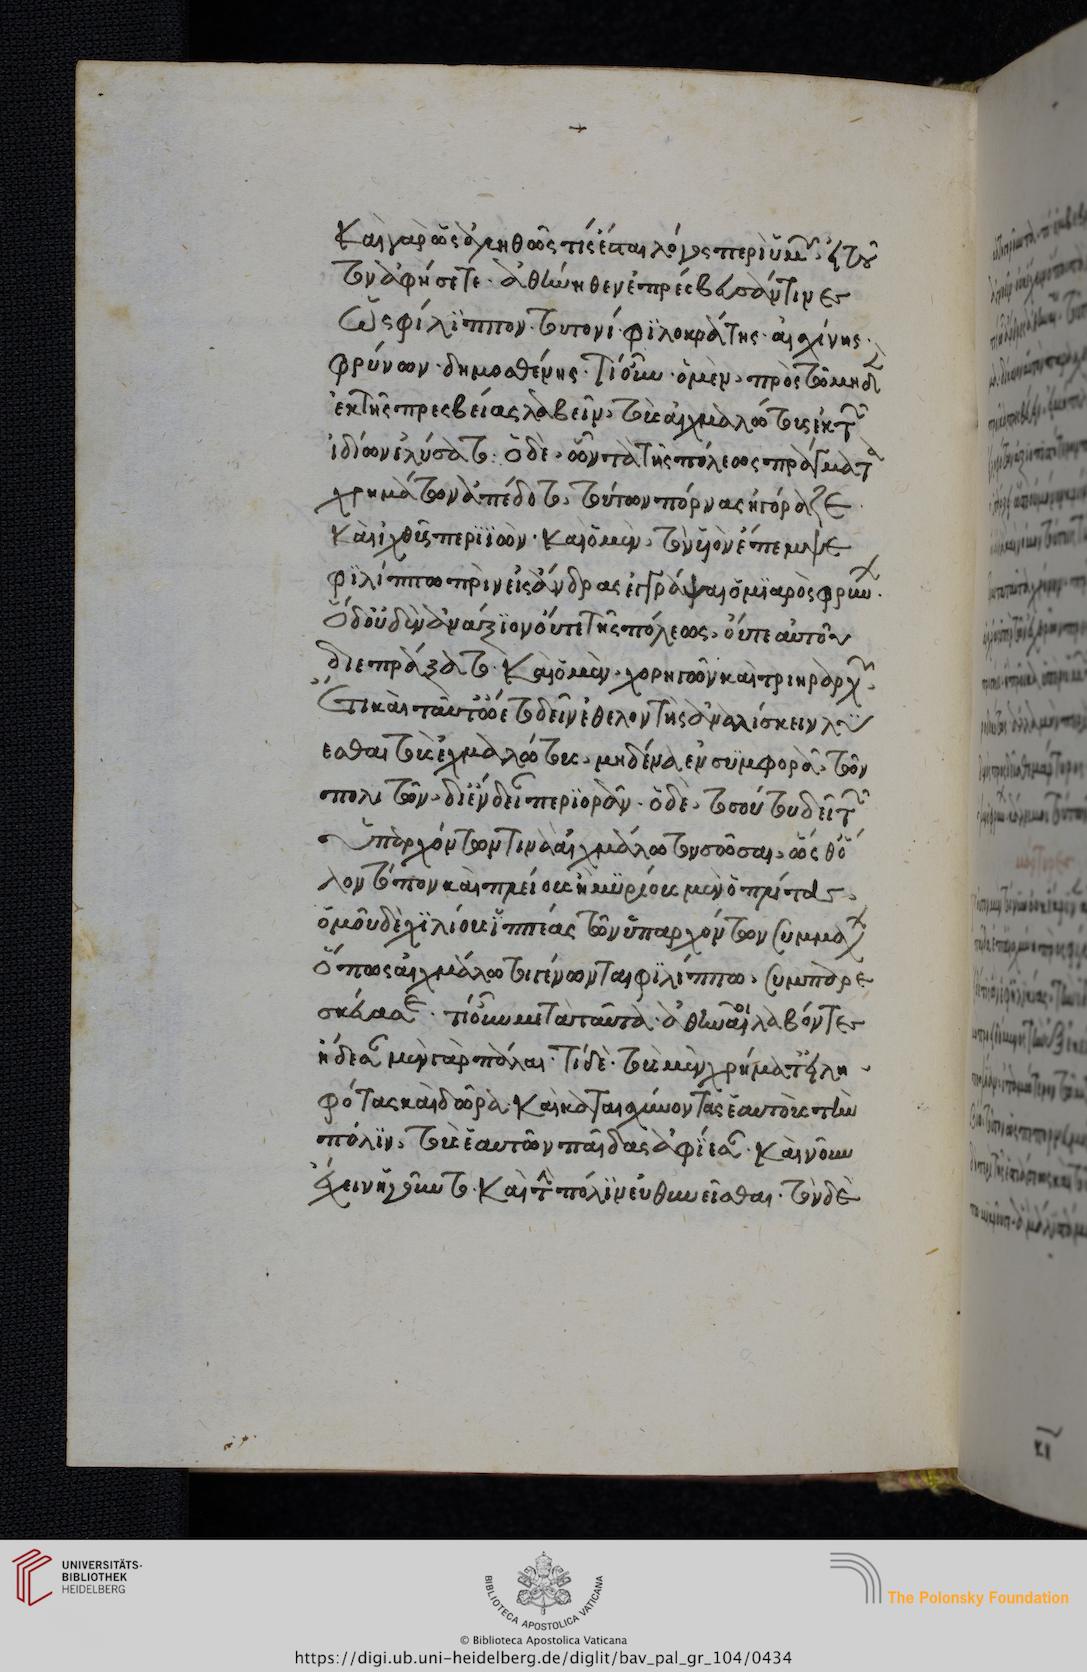 καὶ γὰρ ὡς ἀληθῶς τίς ἔσται λόγος περὶ ὑμῶν, εἰ τοῦ
τον ἀφήσετε· ἀθήνηθεν ἐπρέσβευσάν τινες
ὡς φίλιππον τουτονί· φιλοκράτης· αἰσχίνης·
φρύνων· δημοσθένης· τί οὖν· ὁ μὲν, πρὸς τῶ μηδὲν
ἐκ τῆς πρεσβείας λαβεῖν, τοὺς αἰχμαλώτους ἐκ τῶν
ἰδίων ἐλύσατο· ὁ δὲ, ὧν τὰ τῆς πόλεως πράγματα
χρημάτων ἀπέδοτο, τούτων πόρνας ἠγόραζε
καὶ ἰχθῦς περιϊών· καὶ ὁ μὲν, τὸν υἱὸν ἔπεμψε
φιλίππω πρὶν εἰς ἄνδρας ἐγγράψαι ὁ μιαρὸς φρύνων·
ὁ δ οὐδὲν ἀνάξιον οὔτε τῆς πόλεως, οὔτε αὑτοῦ
διεπράξατο· καὶ ὁ μὲν, χορηγῶν καὶ τριηραρχῶν,
ἔτι καὶ ταῦτ ὤετο δεῖν ἐθελοντὴς ἀναλίσκειν λύ
εσθαι τοὺς αἰχμαλώτους, μηδένα ἐν συμφορᾶ, τῶν
πολιτῶν, δι ἔνδειαν περιορᾶν· ὁ δὲ, τοσούτου δεῖ τῶν
ὑπαρχόντων τινὰ αἰχμάλωτον σῶσαι, ὥς θ ὅ
λον τόπον καὶ πλείους ἢ μυρίους μὲν ὁπλίτας,
ὁμοῦ δὲ χιλίους ἱππέας τῶν ὑπαρχόντων συμμάχων
ὅπως αἰχμάλωτοι γένωνται φιλίππω, συμπαρε
σκεύασεν· τί οὖν μετὰ ταῦτα· ἀθηναῖοι λαβόντες
ἤδεσαν μὲν γὰρ πάλαι· τί δέ· τοὺς μὲν χρήματ εἰλη
φότας καὶ δῶρα· καὶ καταισχύνοντας ἑαυτοὺς τὴν
πόλιν, τοὺς ἑαυτῶν παῖδας ἀφίεσαν· καὶ νοῦν
ἔχειν ἡγοῦντο· καὶ τὴν πόλιν εὐθυνεῖσθαι· τὸν δὲ
UNIVERSITÄTS-
BIBLIOTHEK
HEIDELBERG
BIBLIOTECA APOSTOLICA VATICANA
The Polonsky Foundation
© Biblioteca Apostolica Vaticana
https://digi.ub.uni-heidelberg.de/diglit/bav_pal_gr_104/0434